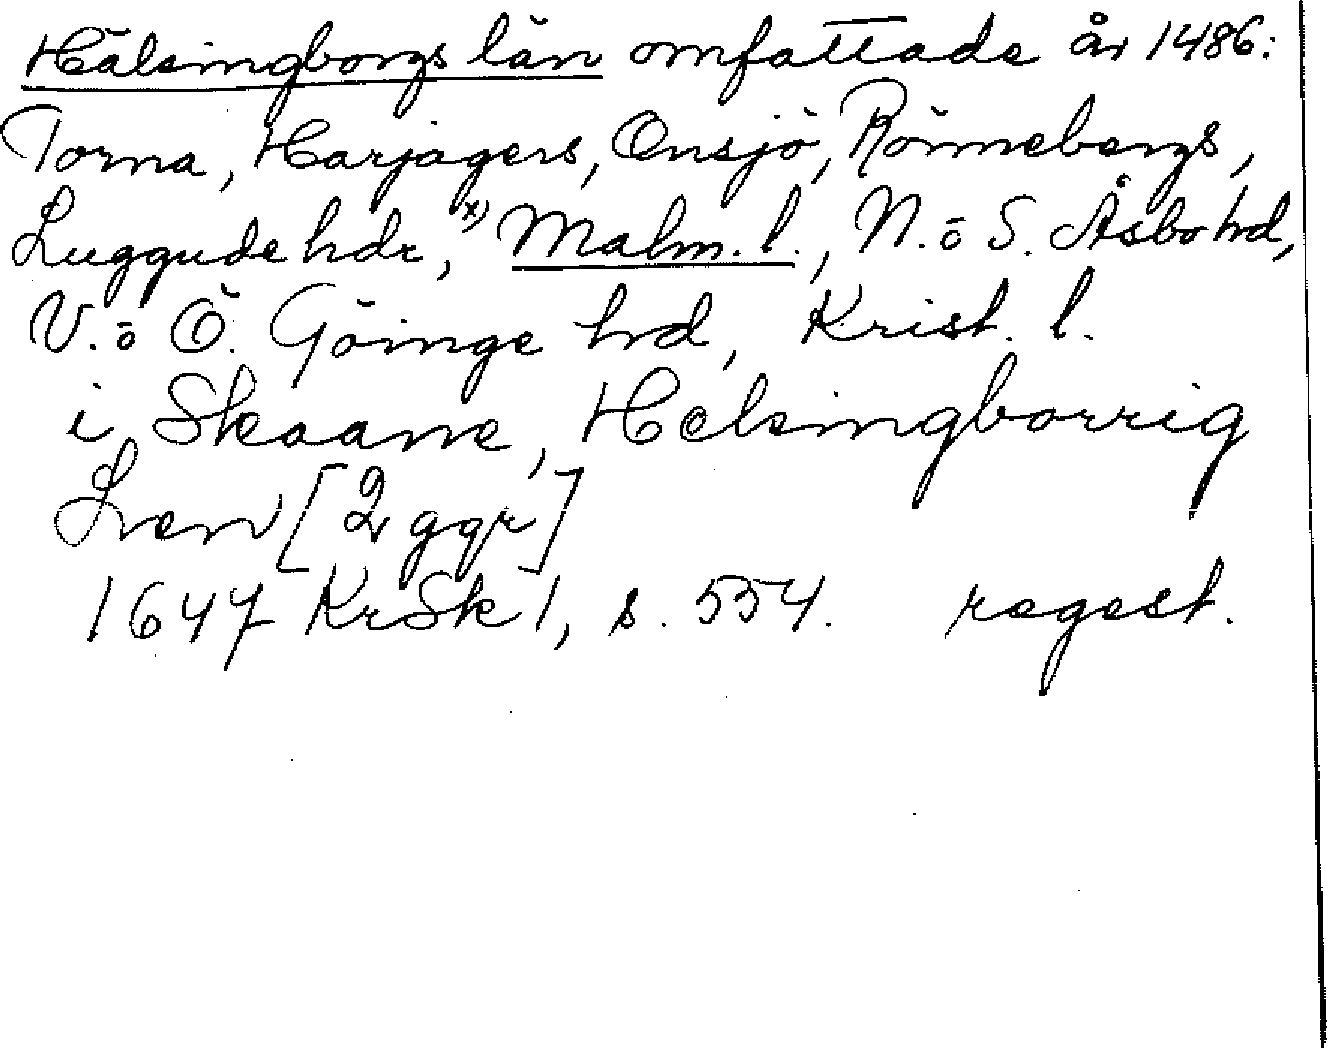 Hälsingborgs län omfattade år 1486:
Torna, Harjagers, Onsjö, Rönnebergs,
Luggude hdr,x) Malm. l., N. ö S. Åsbo hd,
V. ö Ö. Göinge hd, Krist. l.
i Skaane, Helsingborrig
Len [2 ggr]
1647 KrSk 1, s. 554. regest.